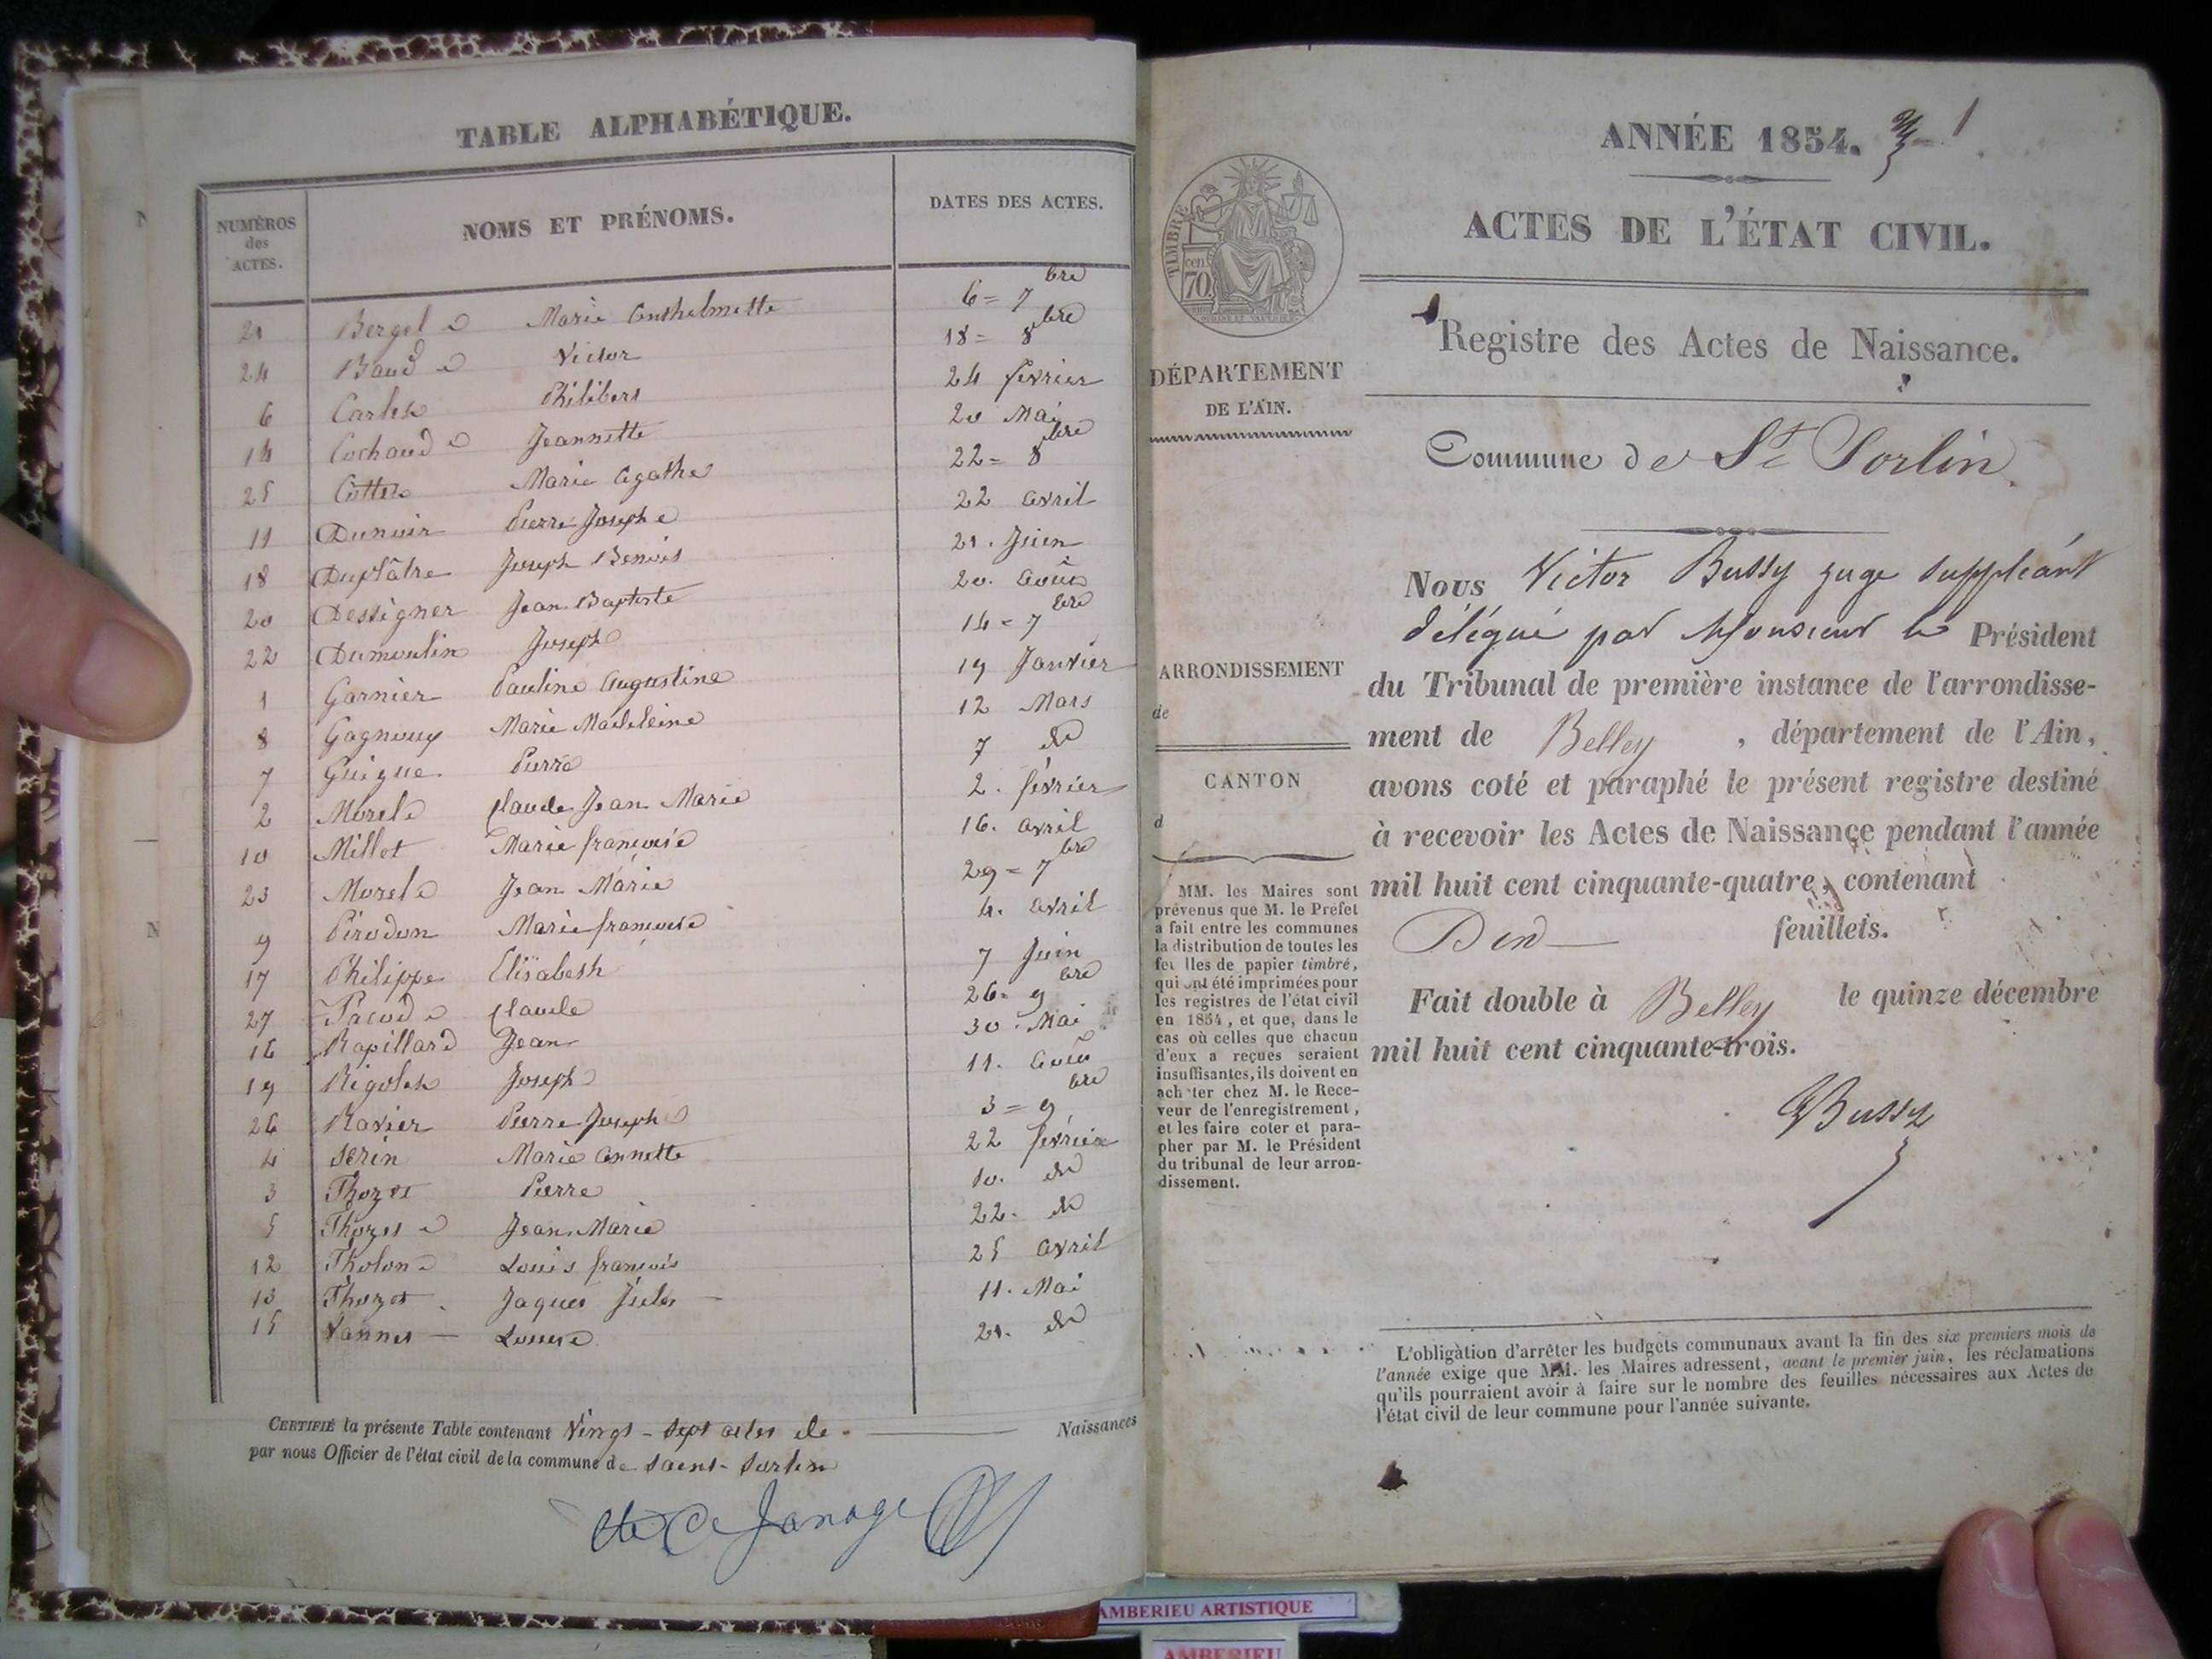 TABLE ALPHABÉTIQUE.
NUMÉROS des ACTES.
NOMS ET PRÉNOMS.
DATES DES ACTES.
21 Bergel Marie Anthelmette 6 = 7bre
24 Baud Victor 18 = 8bre
6 Carlet Philibert 24 février
14 Cochaud Jeannette 20 Mai
25 Cottet Marie Agathe 22 = 8bre
11 Dunoir Pierre Joseph 22 avril
18 Duplâtre Joseph Benoit 21. Juin
20 Dessigner Jean Baptiste 20. Août
22 Dumoulin Joseph 14 = 7bre
1 Garnier Pauline Augustine 19 Janvier
8 Gagnoux Marie Madeleine 12 Mars
7 Guigue Pierre 7 do
2 Morel Claude Jean Marie 2. février
10 Millet Marie françoise 16. avril
23 Morel Jean Marie 29 = 7bre
9 Pirodon Marie françoise 4. avril
17 Philippe Elisabeth 7 Juin
27 Pacoud Claude 26 = 9bre
16 Rapillard Jean 30. Mai
19 Rigolet Joseph 11. Août
26 Ravier Pierre Joseph 3 = 9bre
4 Serin Marie Annette 22 février
3 Thozet Pierre 10. do
5 Thozet Jean Marie 22. do
12 Tholon Louis françois 25 avril
13 Thozet Jaques Jules 11. Mai
15 Vannet Louise 21. do
CERTIFIÉ la présente Table contenant Vingt-Sept actes de Naissances
par nous Officier de l'état civil de la commune de Saint-Sorlin
ANNÉE 1854. 1
ACTES DE L'ÉTAT CIVIL.
TIMBRE
cen 70
Registre des Actes de Naissance.
DÉPARTEMENT
DE L'AIN.
Commune de St Sorlin
Nous Victor Bussy juge suppléant
délégué par Monsieur le Président
du Tribunal de première instance de l'arrondisse-
ment de Belley, département de l'Ain,
avons coté et paraphé le présent registre destiné
à recevoir les Actes de Naissance pendant l'année
mil huit cent cinquante-quatre, contenant
feuillets.
Fait double à Belley le quinze décembre
mil huit cent cinquante-trois.
Bussy
ARRONDISSEMENT
de
CANTON
d
MM. les Maires sont
prévenus que M. le Préfet
a fait entre les communes
la distribution de toutes les
feu lles de papier timbré,
qui ont été imprimées pour
les registres de l'état civil
en 1854, et que, dans le
cas où celles que chacun
d'eux a reçues seraient
insuffisantes, ils doivent en
acheter chez M. le Rece-
veur de l'enregistrement,
et les faire coter et para-
pher par M. le Président
du tribunal de leur arron-
dissement.
L'obligation d'arrêter les budgets communaux avant la fin des six premiers mois de
l'année exige que MM. les Maires adressent, avant le premier juin, les réclamations
qu'ils pourraient avoir à faire sur le nombre des feuilles nécessaires aux Actes de
l'état civil de leur commune pour l'année suivante.
AMBERIEU ARTISTIQUE
AMBERIEU